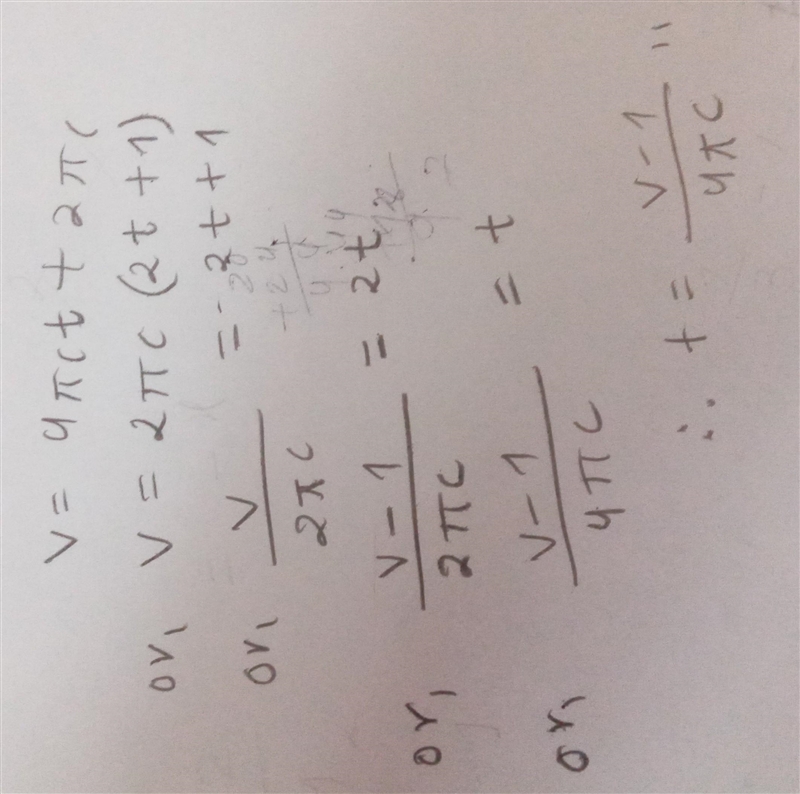 v = 4πct + 2πc
or, v = 2πc (2t + 1)
or, v/2πc = 2t + 1
or, v - 1/2πc = 2t
or, v - 1/4πc = t
∴ t = v - 1/4πc "